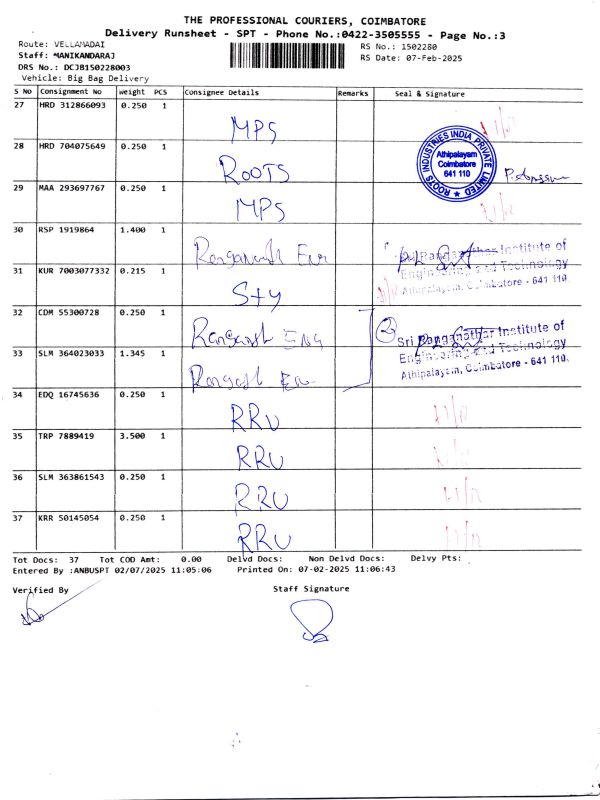 THE PROFESSIONAL COURIERS, COIMBATORE
Delivery Runsheet - SPT - Phone No.:0422-3505555 - Page No.:3
Route: VELLAMADAI
RS No.: 1502280
Staff: MANIKANDARAJ
RS Date: 07-Feb-2025
DRS No.: DCJB150228003
Vehicle: Big Bag Delivery
S No Consignment No Weight PCS Consignee Details Remarks Seal & Signature
27 HRD 312866093 0.250 1
MPS
28 HRD 704075649 0.250 1
ROOTS
ROOTS INDUSTRIES INDIA PRIVATE LIMITED
Athipalayam
Coimbatore
641 110
29 MAA 293697767 0.250 1
MPS
30 RSP 1919864 1.400 1
Sri Ranganathar Institute of
Engineering and Technology
Athipalayam, Coimbatore - 641 110
31 KUR 7003077332 0.215 1
32 CDM 55300728 0.250 1
ENG
2
Sri Ranganathar Institute of
Engineering and Technology
Athipalayam, Coimbatore - 641 110.
33 SLM 364023033 1.345 1
34 EDQ 16745636 0.250 1
RRU
35 TRP 7889419 3.500 1
RRU
36 SLM 363861543 0.250 1
RRU
37 KRR 50145054 0.250 1
RRU
Tot Docs: 37 Tot COD Amt: 0.00 Delvd Docs: Non Delvd Docs: Delvy Pts:
Entered By :ANBUSPT 02/07/2025 11:05:06 Printed On: 07-02-2025 11:06:43
Verified By
Staff Signature